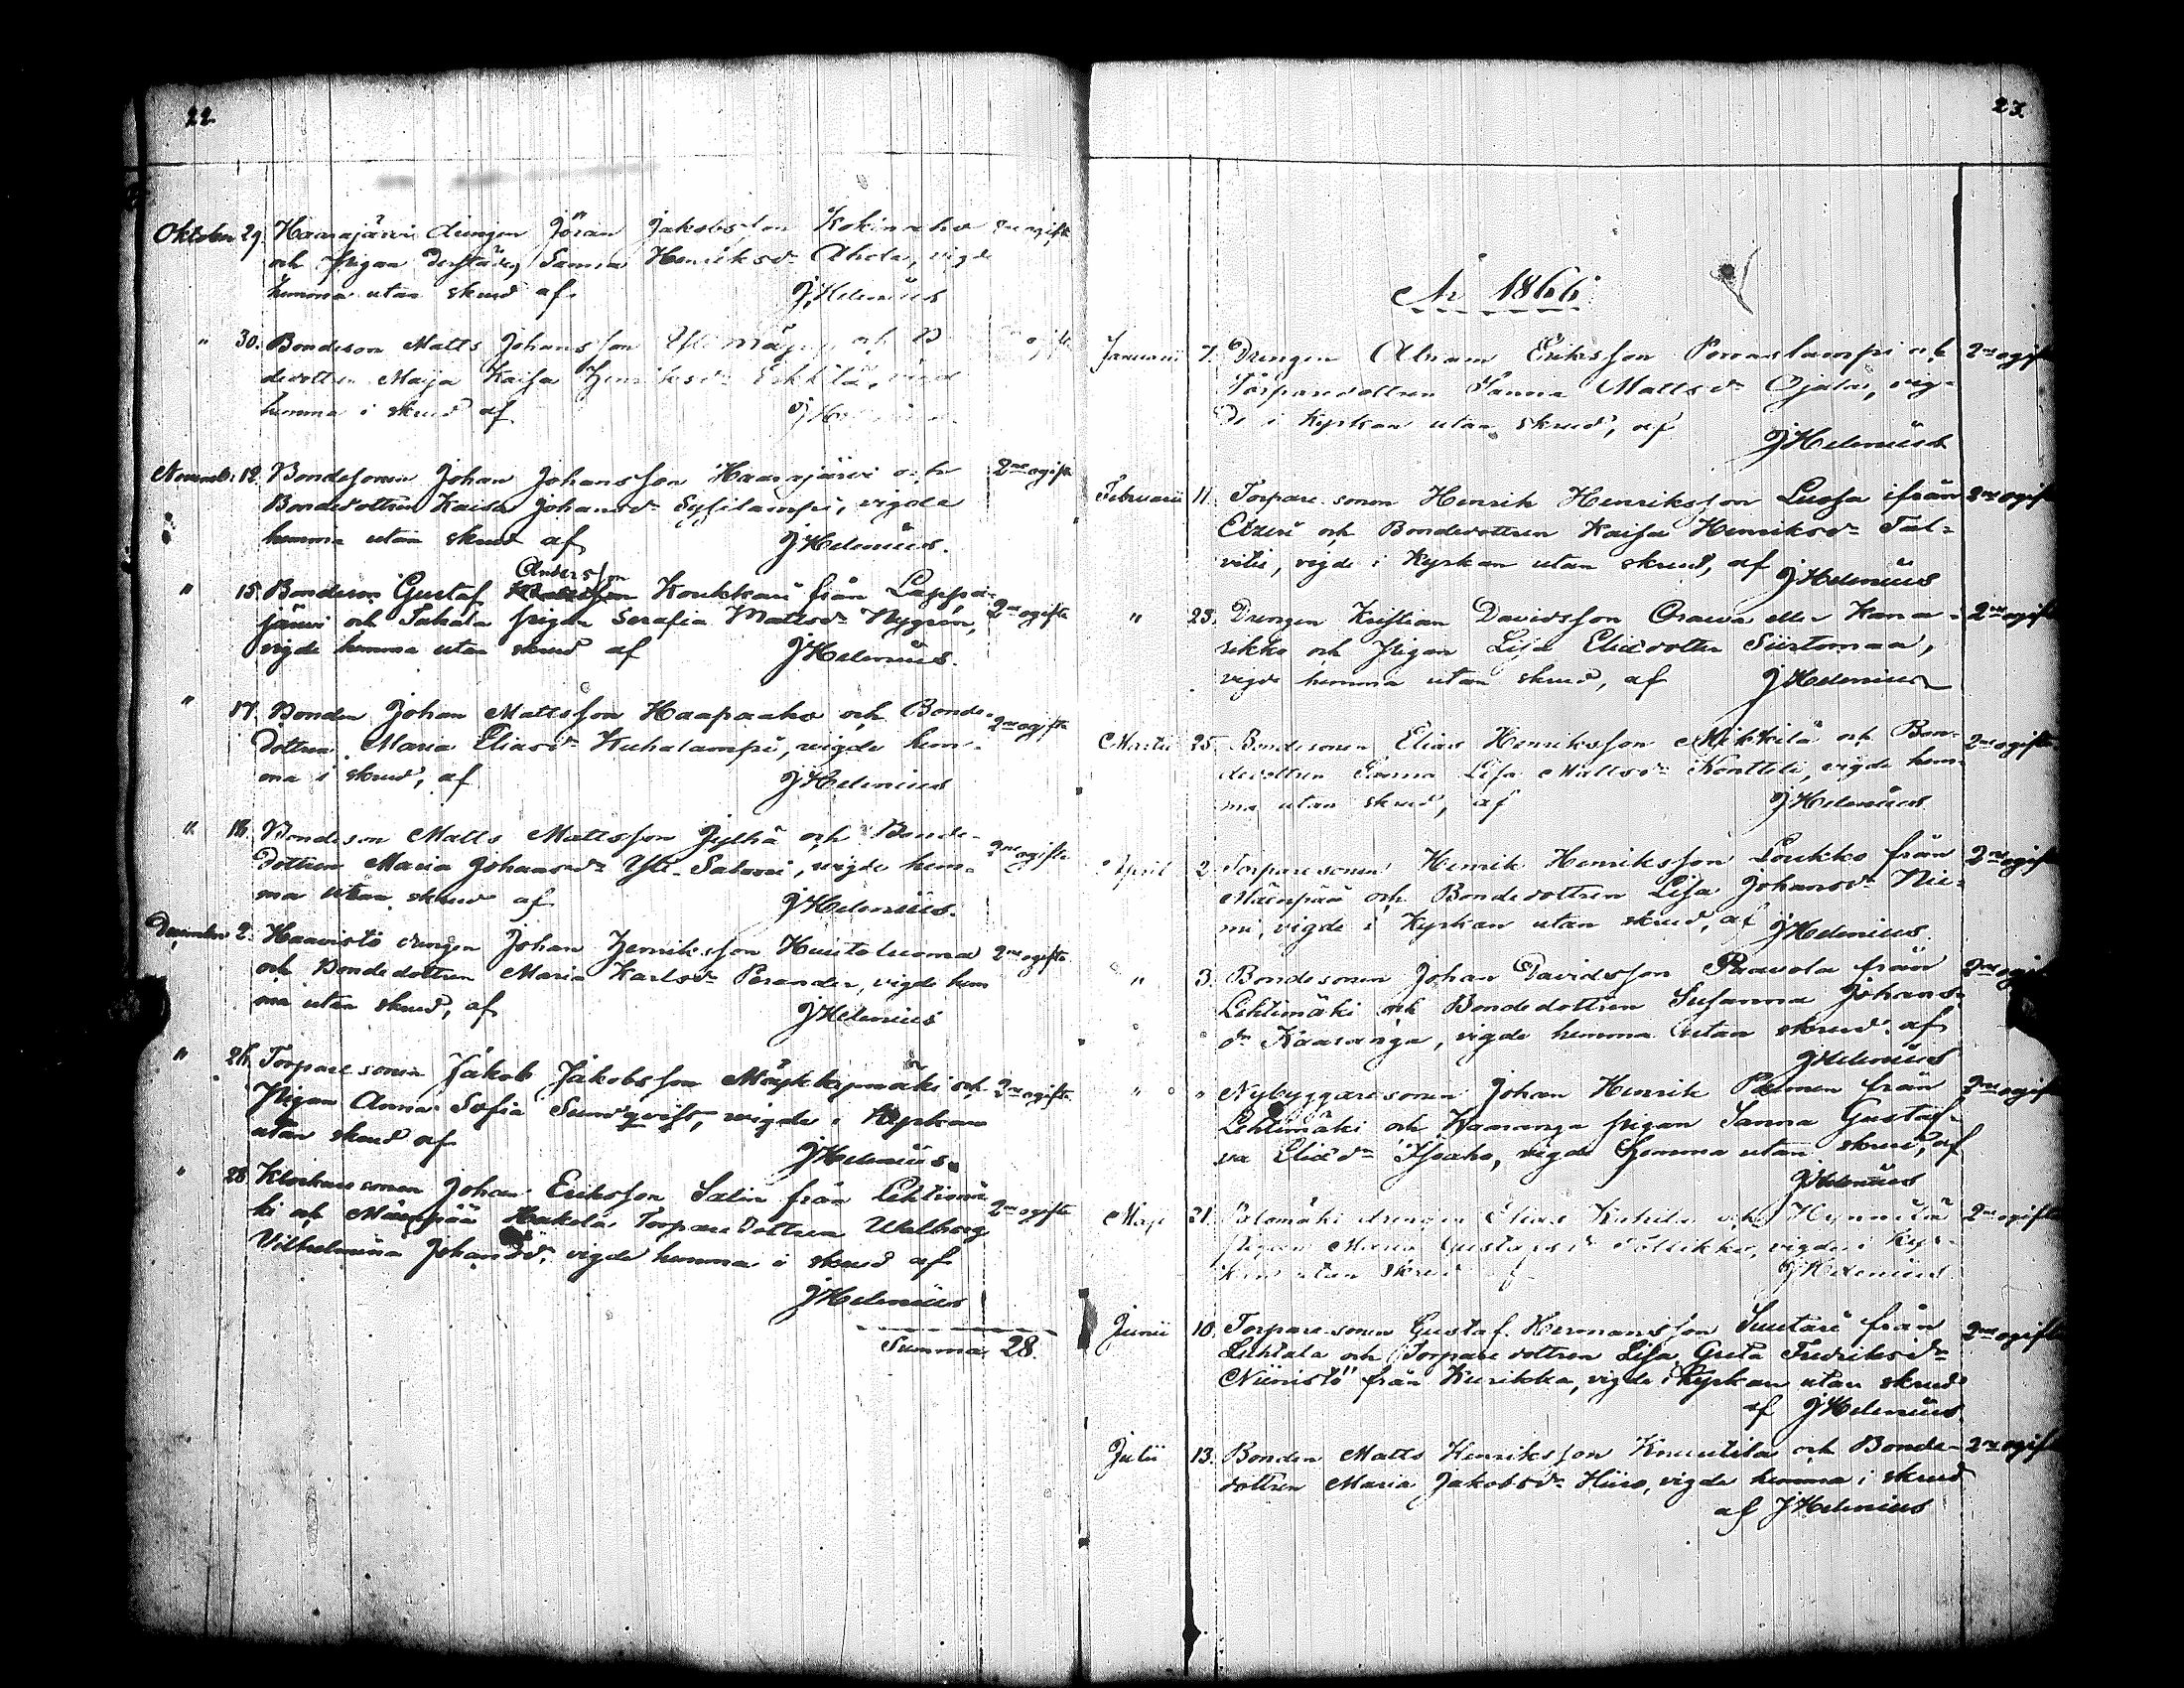 22.
Oktober 29. Haarajärvi drengen Jöran Jakobsson Kokinaho 2ne ogifte
och Pigan derstädes Sanna Henriksdr Ahola, vigde
hemma utan skrud af J Helenius
" 30. Bondeson Matts Johansson och
dedottren Maja Kaisa Henriksdr Erkkilä, vigde
hemma i skrud af
Novemb: 12. Bondesonen Johan Johansson Haarajärvi och 2ne ogifte
Bondedottren Kaisa Johansdr Sysilampi, vigde
hemma utan skrud af J Helenius.
Andersson
" 15. Bondeson Gustaf Koukkari från Lappa-
järvi och Takala pigan Serafia Mattsdr Nygren, 2ne ogifte
vigde hemma utan skrud af J Helenius.
" 17. Bonden Johan Mattsson Haapaaho och Bonde- 2ne ogifte
dottren Maria Eliasdr Kuhalampi, vigde hem-
ma i skrud, af J Helenius
" 18. Bondeson Matts Mattsson Jylhä och Bonde-
dottren Maria Johansdr Yli-Salomi, vigde hem- 2ne ogifte
ma utan skrud af J Helenius.
December 2. Haavisto drengen Johan Henriksson Huutoluoma 2ne ogifte
och Bondedottren Maria Karlsdr Perander, vigde hem
ma utan skrud, af J Helenius
" 26. Torparesonen Jakob Jakobsson Mäykkymäki och 2ne ogifte
Pigan Anna Sofia Sundqvist, vigde i Kyrkan
utan skrud af J Helenius.
" 28. Klockaresonen Johan Eriksson Salin från Lehtimä
ki och Mäenpää Hakola Torparedottren Walborg 2ne ogifte
Vilhelmina Johansdr, vigde hemma i skrud af
J Helenius
Summa 28.
23.
År 1866
Januarii 7. Drengen Abram Eriksson Porraslampi och 2ne ogifte
Torparedottren Sanna Mattsdr Ojala, vig-
de i Kyrkan utan skrud, af J Helenius
Februarii 11. Torpare sonen Henrik Henriksson Luosa ifrån 2ne ogifte
Etzeri och Bondedottren Kaisa Henriksdr Tal-
vitie, vigde i Kyrkan utan skrud, af J Helenius
" 25. Drengen Kristian Davidsson Orawa eller Kana- 2ne ogifte
sikko och Pigan Lisa Eliædotter Siirtomaa,
vigde hemma utan skrud, af J Helenius
Martii 25. Bondesonen Elias Henriksson Mikkilä och Bon- 2ne ogifte
dedottren Sanna Lisa Mattsdr Kontteli, vigde hem-
ma utan skrud, af J Helenius
April 2. Torparesonen Henrik Henriksson Loukko från 2ne ogifte
Mäenpää och Bondedottren Lisa Johansdr Nie-
mi, vigde i Kyrkan utan skrud, af J Helenius.
" 3. Bondesonen Johan Davidsson Paavola från 2ne ogifte
Lehtimäki och Bondedottren Susanna Johans-
dr Kaaranga, vigde hemma utan skrud af
J Helenius
" " Nybyggaresonen Johan Henrik från 2ne ogifte
Lehtimäki och Kaaranga pigan Sanna Gusta-
va Eliædr Isoaho, vigde hemma utan skrud, af
J Helenius
Maji 21. drengen Elias och Hynnilä 2ne ogifte
pigan Maria Gustafsdr Töllikko, vigde i Kyr-
kan utan skrud af J Helenius
Junii 10. Torparesonen Gustaf Hermansson Suutari från 2ne ogifte
Luhtala och Torparedottren Lisa Greta Fredriksdr
Niinistö från Kurikka, vigde i Kyrkan utan skrud
af J Helenius.
Julii 13. Bonden Matts Henriksson Knuutila och Bonde- 2ne ogifte
dottren Maria Jakobsdr Hiiro, vigde hemma i skrud
af J Helenius